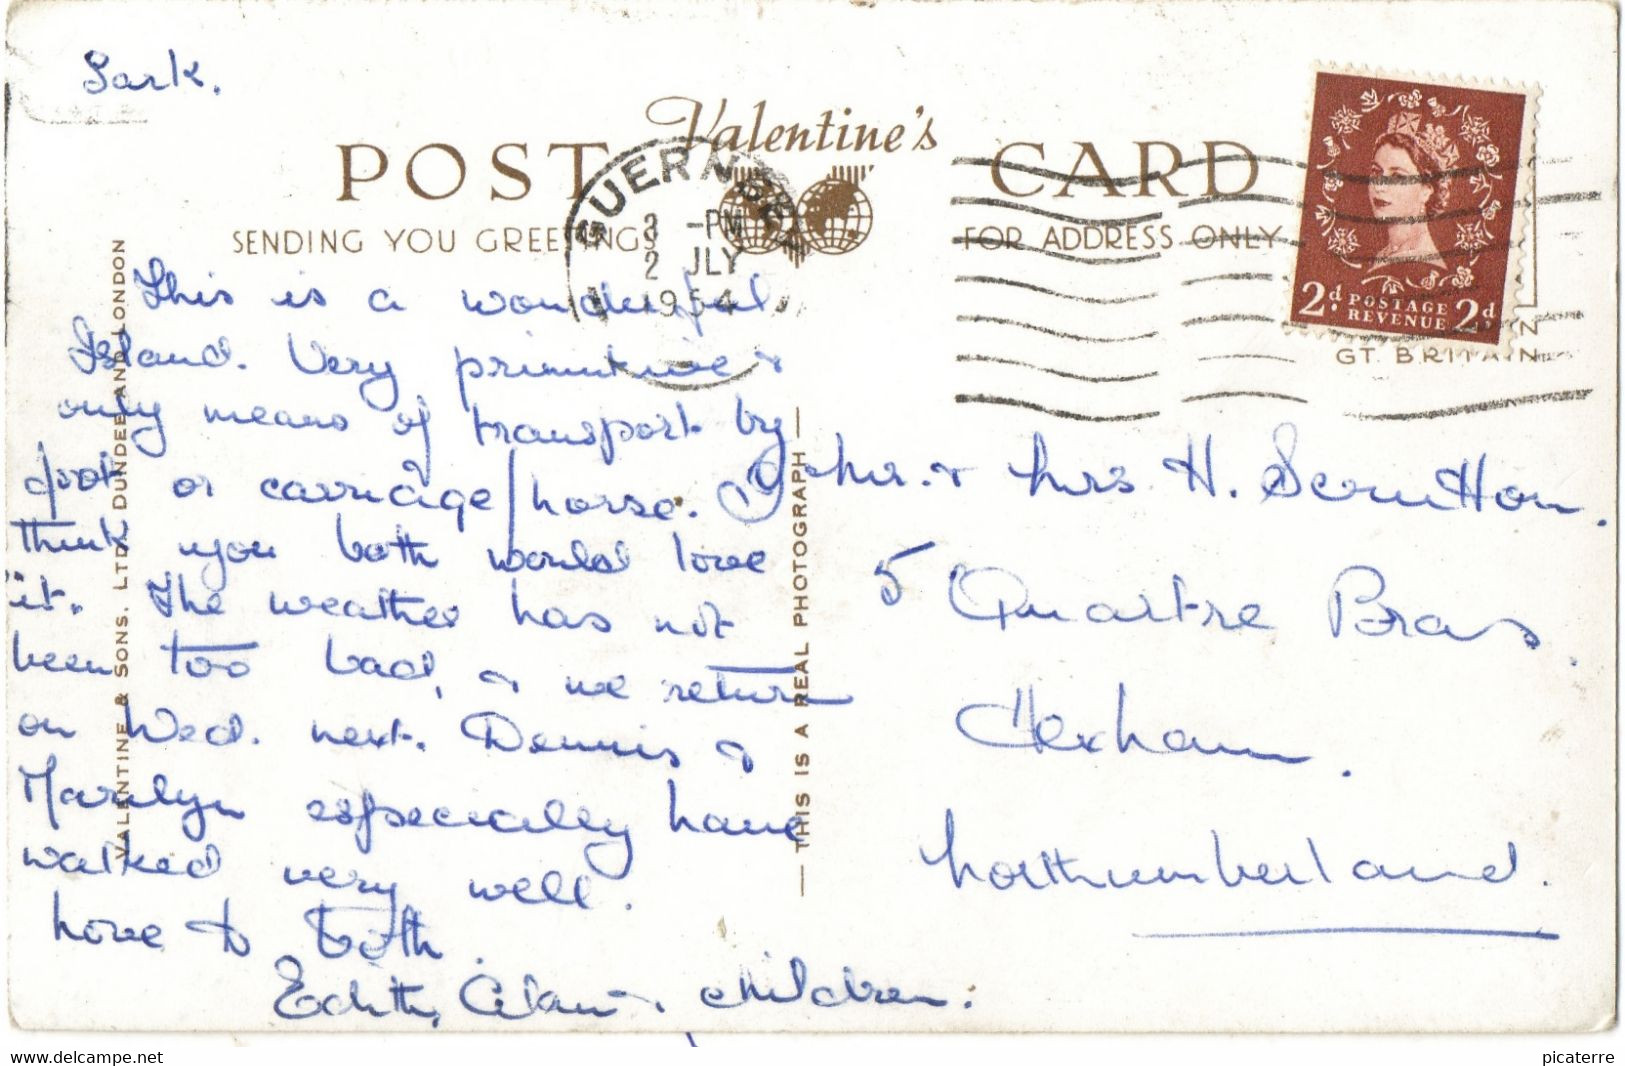 Sark.
Valentine's
POST CARD
SENDING YOU GREETINGS
FOR ADDRESS ONLY
GUERNSEY
3 -PM
2 JLY
1954
2d. POSTAGE REVENUE 2d.
GT. BRITAIN
This is a wonderful
Island. Very primitive &
only means of transport by
foot or carriage/horse. I
think you both would love
it. The weather has not
been too bad, & we return
on Wed. next. Dennis &
Marilyn especially have
walked very well.
Love to both.
Edith, Alan & children.
Mr. & Mrs H. Scrutton.
5 Quartre Bras.
Hexham.
Northumberland.
VALENTINE & SONS. LTD. DUNDEE AND LONDON
— THIS IS A REAL PHOTOGRAPH —
www.delcampe.net
picaterre